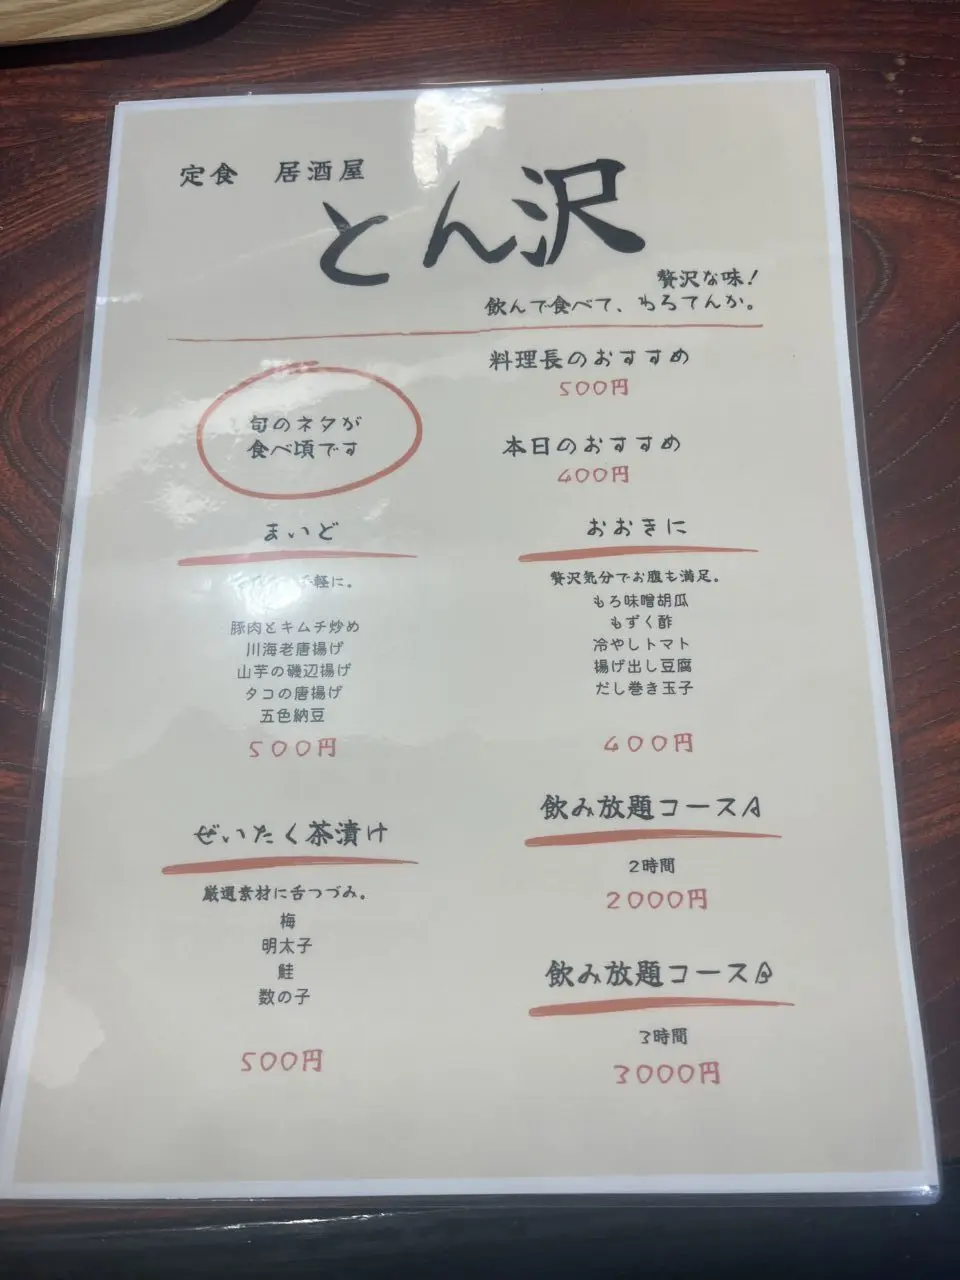 定食　居酒屋
とん沢
贅沢な味！
飲んで食べて、わろてんか。
旬のネタが
食べ頃です
料理長のおすすめ
500円
本日のおすすめ
400円
まいど
軽に。
豚肉とキムチ炒め
川海老唐揚げ
山芋の磯辺揚げ
タコの唐揚げ
五色納豆
500円
おおきに
贅沢気分でお腹も満足。
もろ味噌胡瓜
もずく酢
冷やしトマト
揚げ出し豆腐
だし巻き玉子
400円
ぜいたく茶漬け
厳選素材に舌つづみ。
梅
明太子
鮭
数の子
500円
飲み放題コースA
2時間
2000円
飲み放題コースB
3時間
3000円